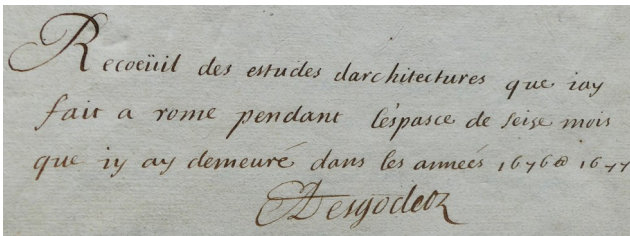 Recoeüil des estudes darchitectures que iay
fait a rome pendant léspasce de seise mois
que iy ay demeuré dans les anneés 1676 & 1677
Desgodetz